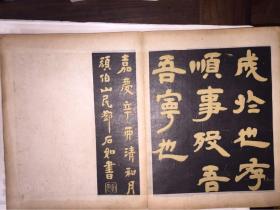 成於也存
順事殁吾
吾寧也
嘉慶辛酉清和月
頑伯山民鄧石如書